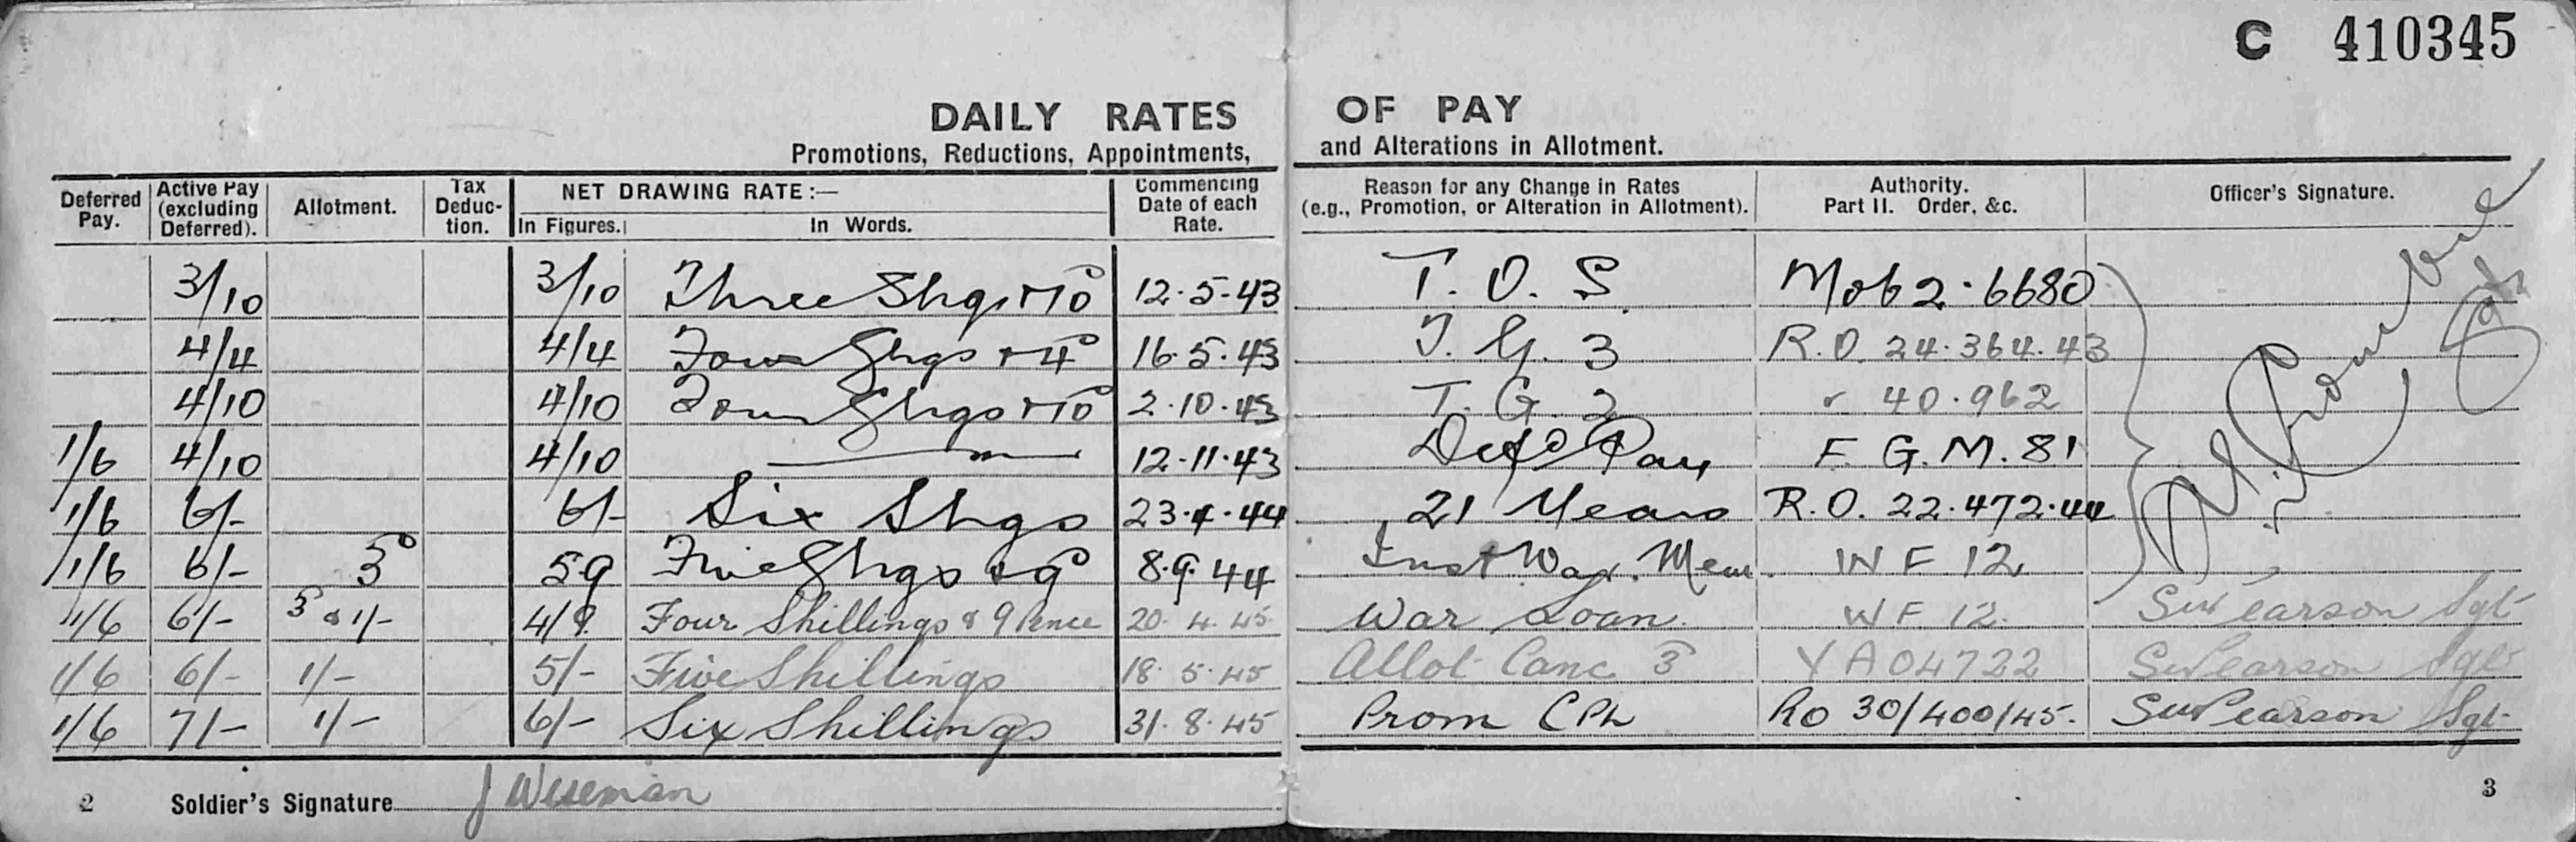 C 410345
DAILY RATES OF PAY
Promotions, Reductions, Appointments, and Alterations in Allotment.
Deferred Pay. Active Pay (excluding Deferred). Allotment. Tax Deduc-tion. NET DRAWING RATE:— In Figures. In Words. Commencing Date of each Rate. Reason for any Change in Rates (e.g., Promotion, or Alteration in Allotment). Authority. Part II. Order, &c. Officer's Signature.
3/10 3/10 Three Shgs & 10 12·5·43 T. O. S. Mob 2·6680
4/4 4/4 Four Shgs & 4 16·5·43 T. G. 3 R.O. 24·364·43
4/10 4/10 Four Shgs & 10 2·10·43 T. G. 2 " 40·962
1/6 4/10 4/10 12·11·43 Defd Pay F. G. M. 81
1/6 6/- 6/- Six Shgs 23·4·44 21 Years R.O. 22·472·44
1/6 6/- 3d 5 9 Five Shgs & 9d 8·9·44 Inst War. Mem. W F 12
1/6 6/- 3d & 1/- 4/9 Four Shillings & 9 Pence 20·4·45 War Loan. W F 12. SW Pearson Sgt
1/6 6/- 1/- 5/- Five Shillings 18·5·45 Allot Canc 3d Y A04722 SW Pearson Sgt
1/6 7/- 1/- 6/- Six Shillings 31·8·45 Prom CPL RO 30/400/45. SW Pearson Sgt
2 Soldier's Signature J Wiseman 3